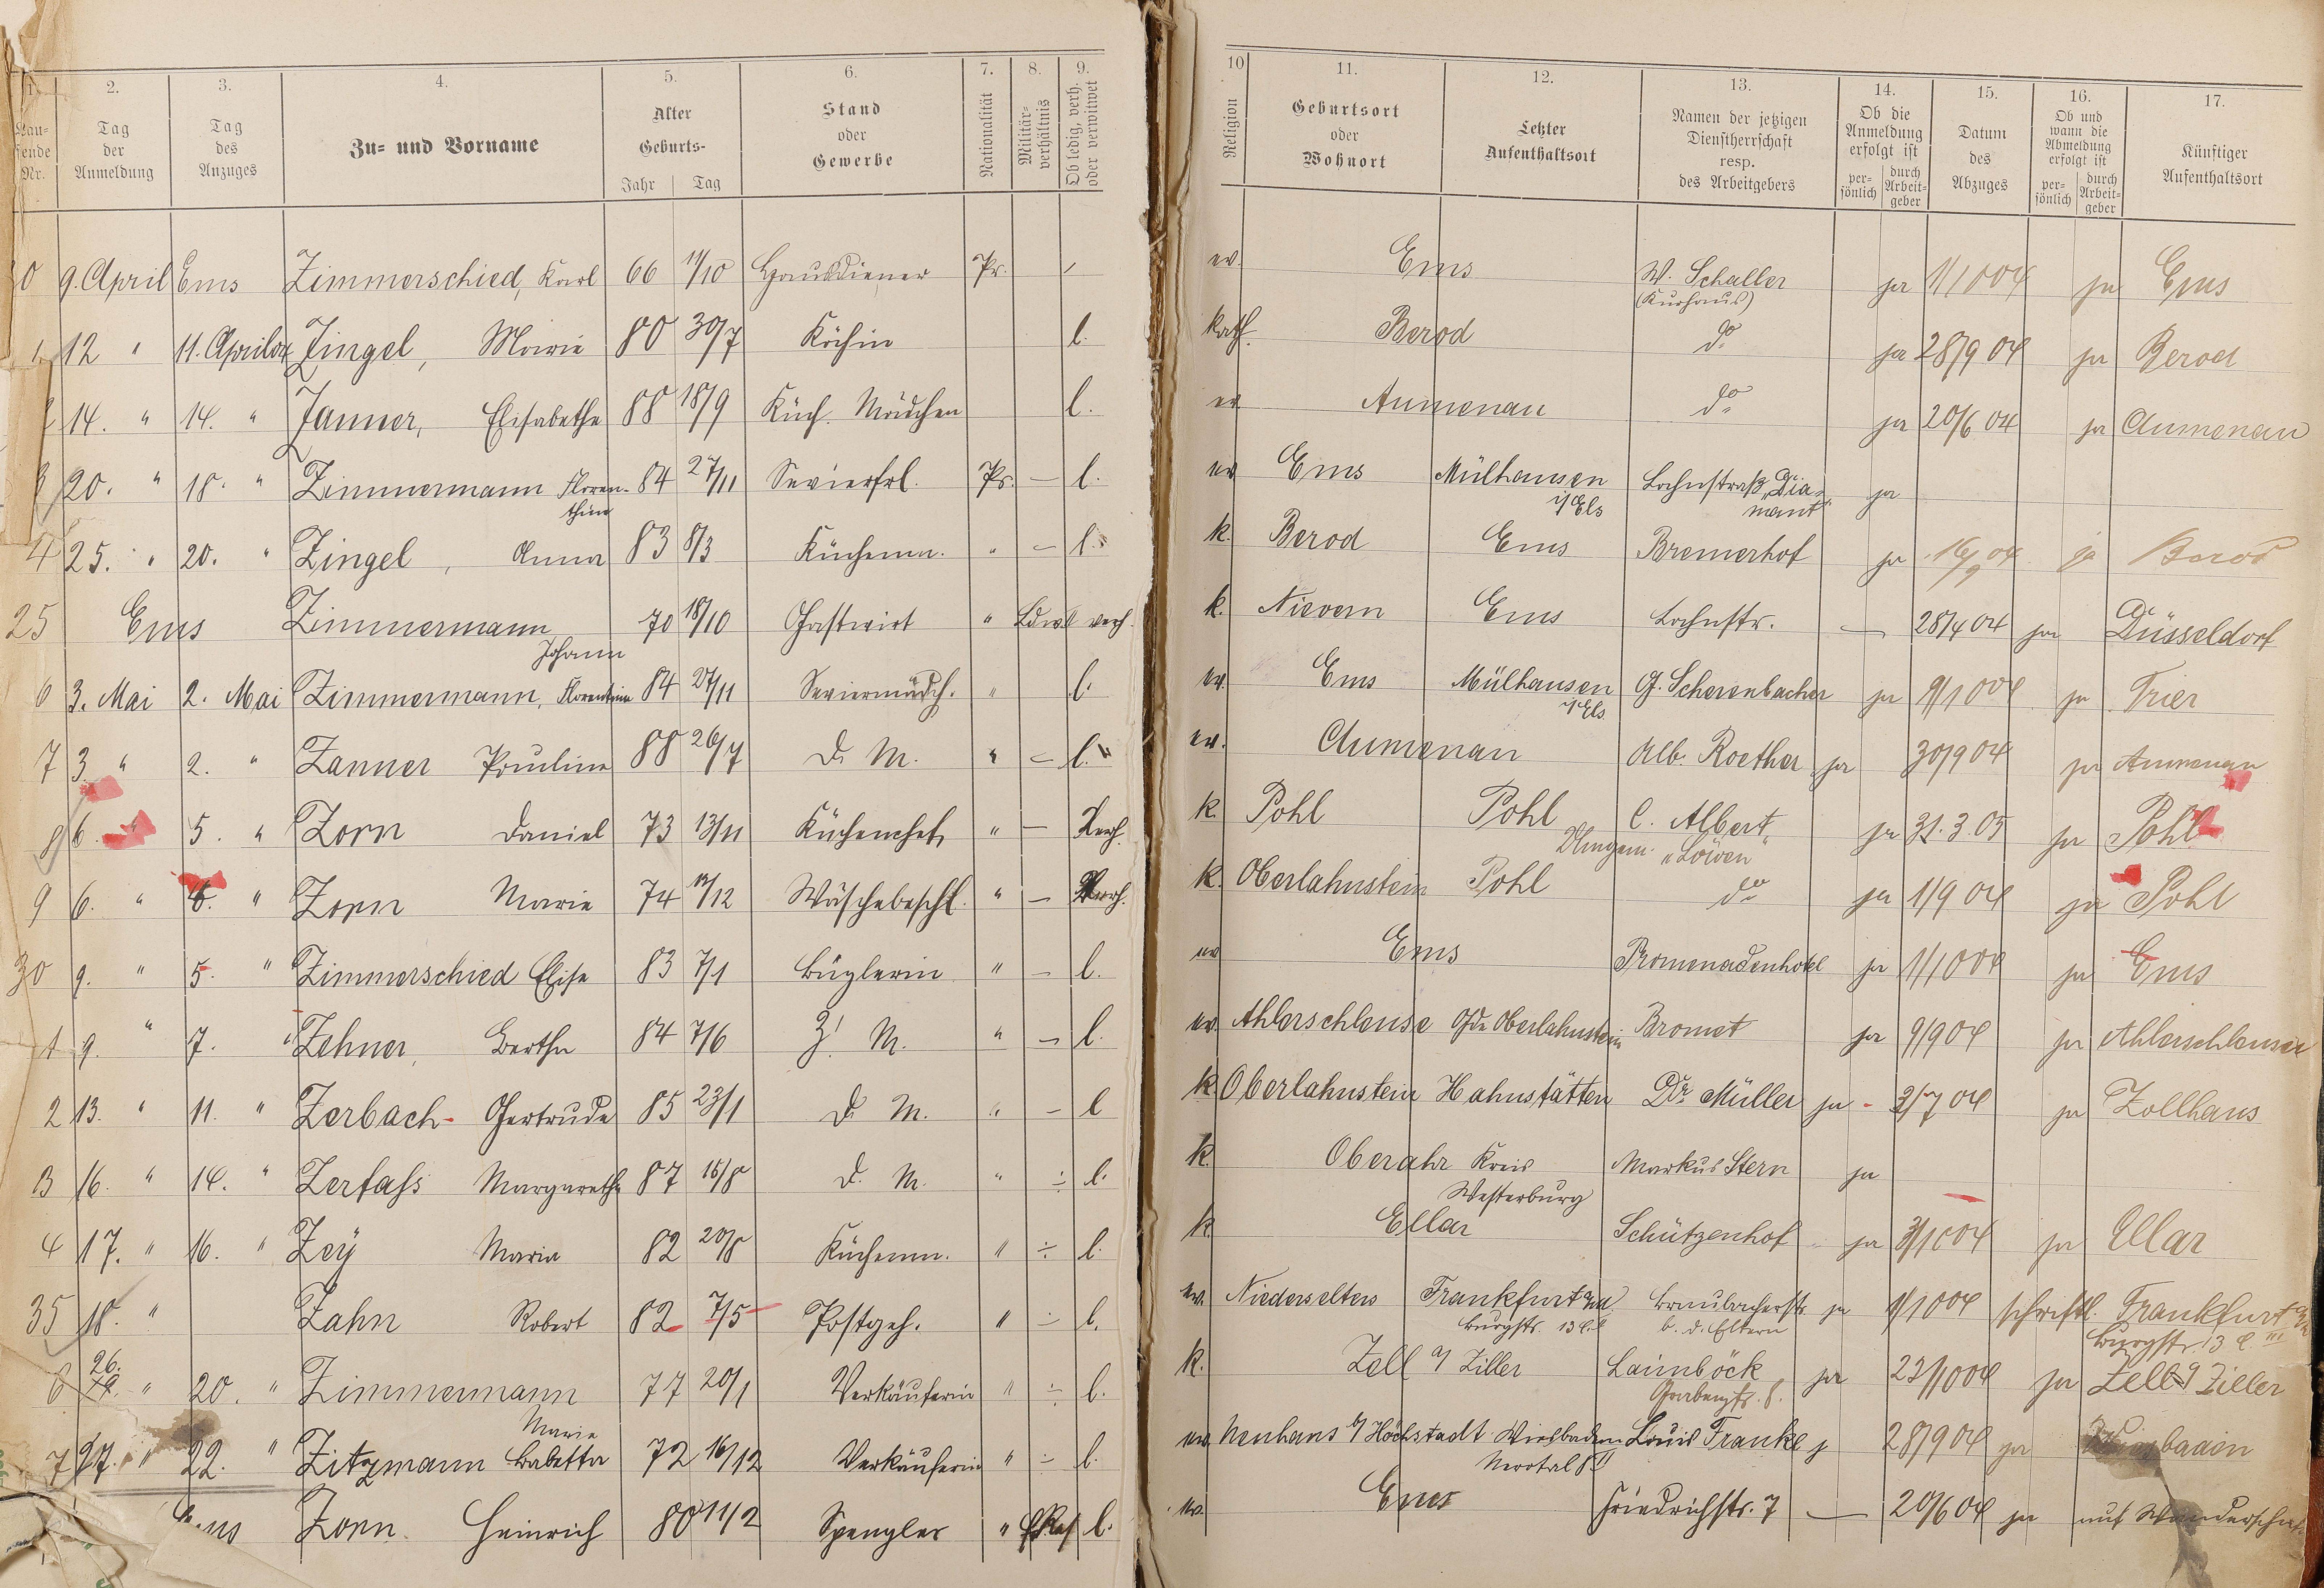 1. 2. 3. 4. 5. 6. 7. 8. 9.
Lau-fende Nr. Tag der Anmeldung Tag des Anzuges Zu- und Vorname Alter Geburts- Jahr Tag Stand oder Gewerbe Nationalität Militär-verhältnis Ob ledig, verh. oder verwitwet
10 11. 12. 13. 14. 15. 16. 17.
Religion Geburtsort oder Wohnort Letzter Aufenthaltsort Namen der jetzigen Dienstherrschaft resp. des Arbeitgebers Ob die Anmeldung erfolgt ist per-sönlich durch Arbeit-geber Datum des Abzuges Ob und wann die Abmeldung erfolgt ist per-sönlich durch Arbeit-geber Künftiger Aufenthaltsort
0 9. April Ems Zimmerschied, Karl 66 11/10 Hausdiener Pr. ev. Ems W. Schaller (Kurhaus) ja 1/10 04 ja Ems
1 12 " 11. April 04 Zingel, Marie 80 30/7 Köchin l. kath. Berod do ja 28/9 04 ja Berod
14. " 14. " Janner, Elisabethe 88 18/9 Küch. Mädchen l. ev Aumenau do ja 20/6 04 ja Aumenau
3 20. " 18. " Zimmermann Floren-thine 84 27/11 Sevierfrl. Pr. — l. ev Ems Mülhausen i/Els Lahnstraß "Dia-mant" ja
4 25. " 20. " Zingel, Anna 83 8/3 Küchenm. " — l. k. Berod Ems Bremerhof ja 16/9 04 ja Berod
25 Ems Zimmermann Johann 70 18/10 Gastwirt " Ldw II verh. k. Nievern Ems Lahnstr. — 28/4 04 ja Düsseldorf
6 3. Mai 2. Mai Zimmermann, Florentine 84 27/11 Seviermädch. " l. ev. Ems Mülhausen i/Els G. Scherenbacher ja 9/10 04 ja Trier
7 3. " 2. " Zanner Pauline 88 26/7 D. M. " — l. ev. Aumenau Alb. Roether ja 30/9 04 ja Aumenau
8 6. " 5. " Zorn Daniel 73 13/11 Küchenchef " — Verh. k. Pohl Pohl C. Albert "Löwen" ja 31.3.05 ja Pohl
9 6. " " Zorn Marie 74 /12 Wäschebeschl. " — Verh. k. Oberlahnstein Pohl do ja 1/9 04 ja Pohl
30 9. " 5. " Zimmerschied Elise 83 7/1 Büglerin " — l. ev Ems Promenadenhotel ja 1/10 04 ja Ems
1 9. " 7. " Zehner, Bertha 84 7/6 Z. M. " — l. ev. Ahlerschleuse Gde Oberlahnstein Bromet ja 9/9 04 ja Ahlerschleuse
2 13. " 11. " Zerbach Gertrude 85 23/1 D. M. " — l k Oberlahnstein Hahnstätten Dr. Müller ja - 3/7 04 ja Zollhaus
3 16. " 14. " Zerfaß Margarethe 87 15/8 D. M. " ÷ l. k. Oberahr Kreis Westerburg Markus Stern ja
4 17. " 16. " Zey Maria 82 20/8 Küchenm. " ÷ l. k. Ellar Schützenhof ja 3/10 04 ja Ellar
35 18. " Zahn Robert 82 7/5 Postgeh. " ÷ l. ev. Niederselters Frankfurt a/M Burgstr. 13 Braubacherstr b. d. Eltern ja 1/10 04 schriftl. Frankfurt a/M Burgstr. 13 III
6 26. 19. " 20. " Zimmermann Marie 77 20/1 Verkäuferin " ÷ l. k. Zell a/ Ziller Laimböck Grabenstr. 8. ja 23/10 04 ja Zell a/ Ziller
7 27. " 22. " Zitzmann Babetta 72 16/12 Verkäuferin " ÷ l. ev. Neuhaus b/ Höchstadt Wiesbaden Nerotal 8 II Louis Franke j 28/9 04 ja Wiesbaden
Ems Zorn Heinrich 80 11/2 Spengler " l. ev. Ems Friedrichstr. 7 — 20/6 04 ja auf Wanderschaft